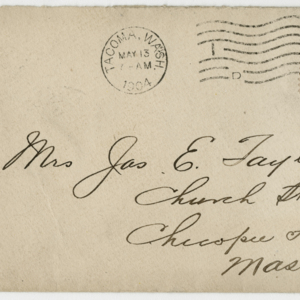 TACOMA, WASH.
MAY 13
AM
1904
D
Mrs Jas E. Tay
Church St
Chicopee
Mas